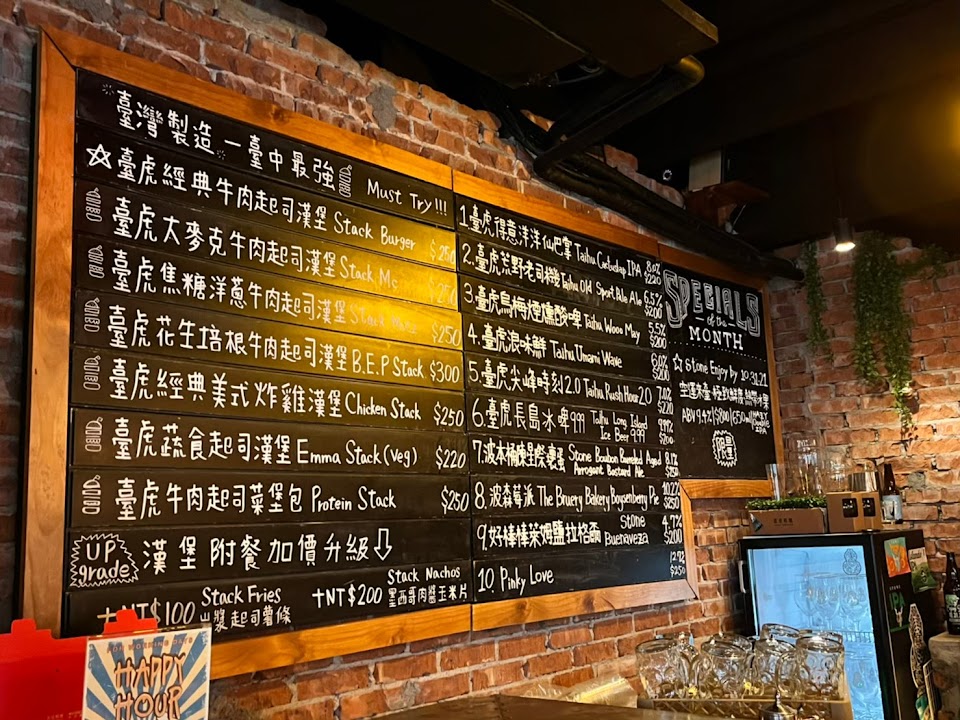 臺灣製造 一臺中最強 Must Try!!!
☆臺虎經典牛肉起司漢堡 Stack Burger $250
臺虎大麥克牛肉起司漢堡 Stack Mc $250
臺虎焦糖洋蔥牛肉起司漢堡 Stack $250
臺虎花生培根牛肉起司漢堡 B.E.P Stack $300
臺虎經典美式炸雞漢堡 Chicken Stack $250
臺虎蔬食起司漢堡 Emma Stack (Veg) $220
臺虎牛肉起司菜堡包 Protein Stack $250
UP grade 漢堡附餐加價升級
+NT$100 Stack Fries 起司薯條
+NT$200 Stack Nachos 墨西哥肉醬玉米片
1.臺虎得意洋洋仙巴拿 Taihu IPA 8.0% $220
2.臺虎荒野老司機 Taihu Old Sport Pale Ale 6.5% $200
3.臺虎烏梅煙燻酸啤 Taihu Woo May 5.5% $200
4.臺虎浪味鮮 Taihu Umami Wave 6.0% $200
5.臺虎尖峰時刻2.0 Taihu Rush Hour 2.0 7.0% $220
6.臺虎長島冰啤9.99 Taihu Long Island Ice Beer 9.99 9.99% $200
7.波本桶陳 Stone Bourbon Barreled Aged Arrogant Bastard Ale 8.1% $250
8.波森莓派 The Bruery Bakery Boysenberry Pie 10.2% $250
9.好棒棒萊姆鹽拉格 Stone Buenaveza 4.7% $200
10. Pinky Love $250
SPECIALS
of the
MONTH
☆Stone Enjoy by 10.31.21
空運來臺
ABV 9.4% | $800 | 650ml | Double IPA
限量
HAPPY
HOUR